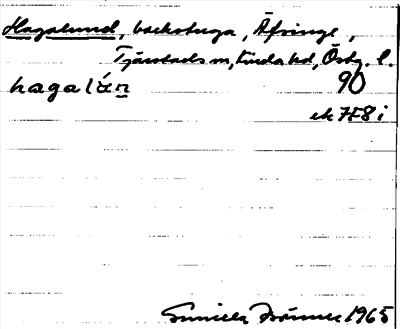 Hagalund, backstuga, Äfvinge,
Tjärstads sn, Kinda hd, Östg. l.
hagalán 90
ek 7F8i
Gunilla 1965